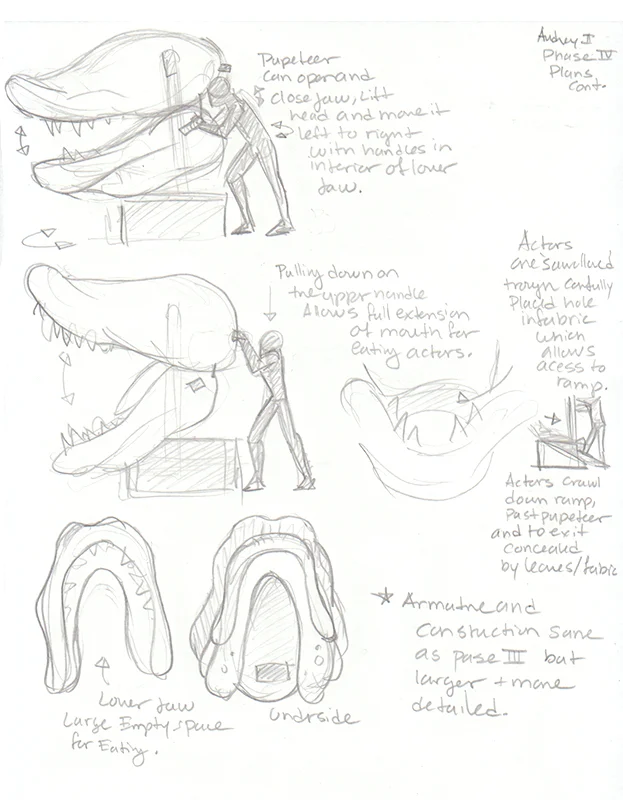 Audrey II
Phase IV
Plans
Cont.
Pupeteer
can open and
close Jaw, Lift
head and move it
left to right
with handles in
interior of lower
Jaw.
Pulling down on
the upper handle
Allows full extension
of mouth for
eating actors.
Actors
are sawallowed
through carfully
Placed hole
in fabric
which
allows
acess to
ramp.
Actors crawl
down ramp,
Past pupeteer
and to exit
concealed
by leaves/fabric
Lower Jaw
Large Empty space
for Eating.
Undrside
Armatne and
Constuction same
as pase III but
larger + more
detailed.